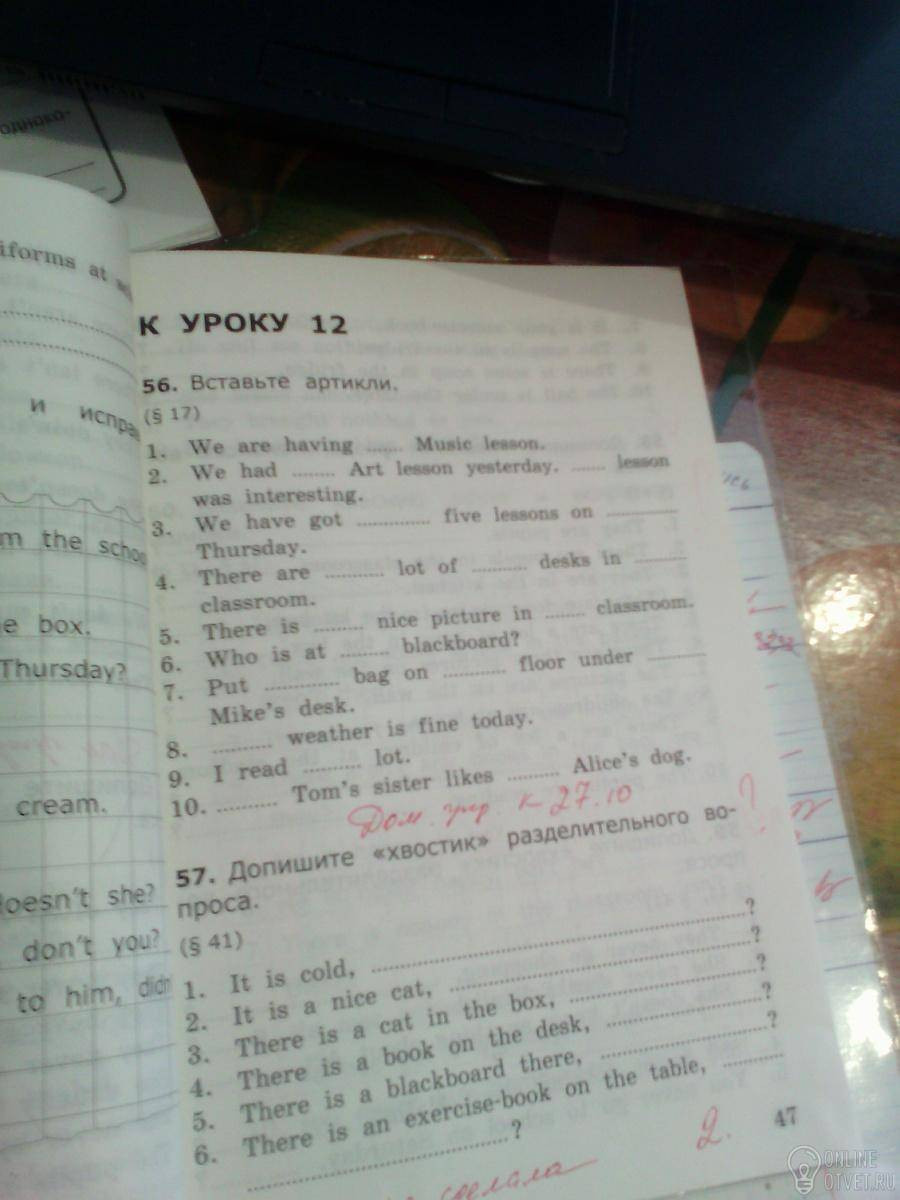 однако-
iforms at
и испра
m the schoo
e box.
Thursday?
cream.
doesn't she?
don't you?
to him, didn
К УРОКУ 12
56. Вставьте артикли.
(§ 17)
1. We are having ....... Music lesson.
2. We had ........ Art lesson yesterday. ....... lesson
was interesting.
3. We have got .............. five lessons on .............
Thursday.
4. There are ........... lot of .......... desks in ..........
classroom.
5. There is ......... nice picture in ........ classroom.
6. Who is at ......... blackboard?
7. Put ............. bag on ........... floor under ..........
Mike's desk.
8. ........... weather is fine today.
9. I read .......... lot.
10. ........... Tom's sister likes ......... Alice's dog.
Дом. упр. к 27.10
?
57. Допишите «хвостик» разделительного во-
проса.
(§ 41)
1. It is cold, ..............................?
2. It is a nice cat, ..............................?
3. There is a cat in the box, ....................?
4. There is a book on the desk, ....................?
5. There is a blackboard there, ....................?
6. There is an exercise-book on the table, ...........
..............................?
сделала
2.
47
ONLINE
OTVET.RU